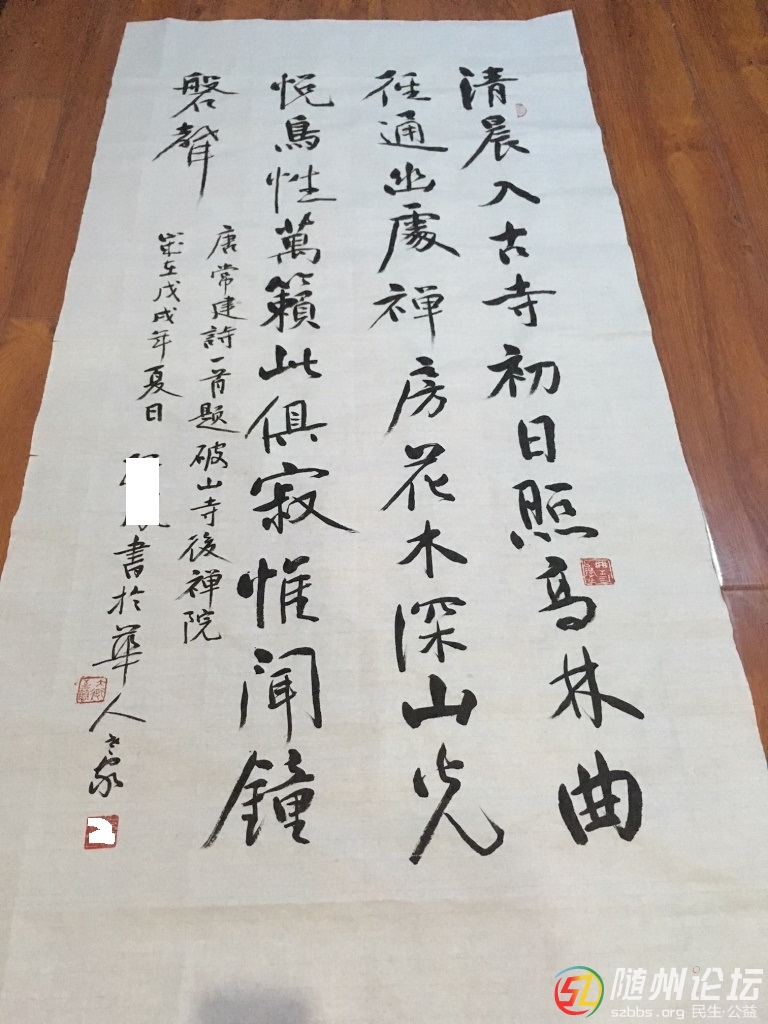 清晨入古寺初日照高林曲
径通幽處禅房花木深山光
悦鳥性萬籟此俱寂惟聞鐘
磐聲
唐常建詩一首题破山寺後禅院
歲在戊戌年夏日 書於華人之家
随州论坛
szbbs.org 民生·公益